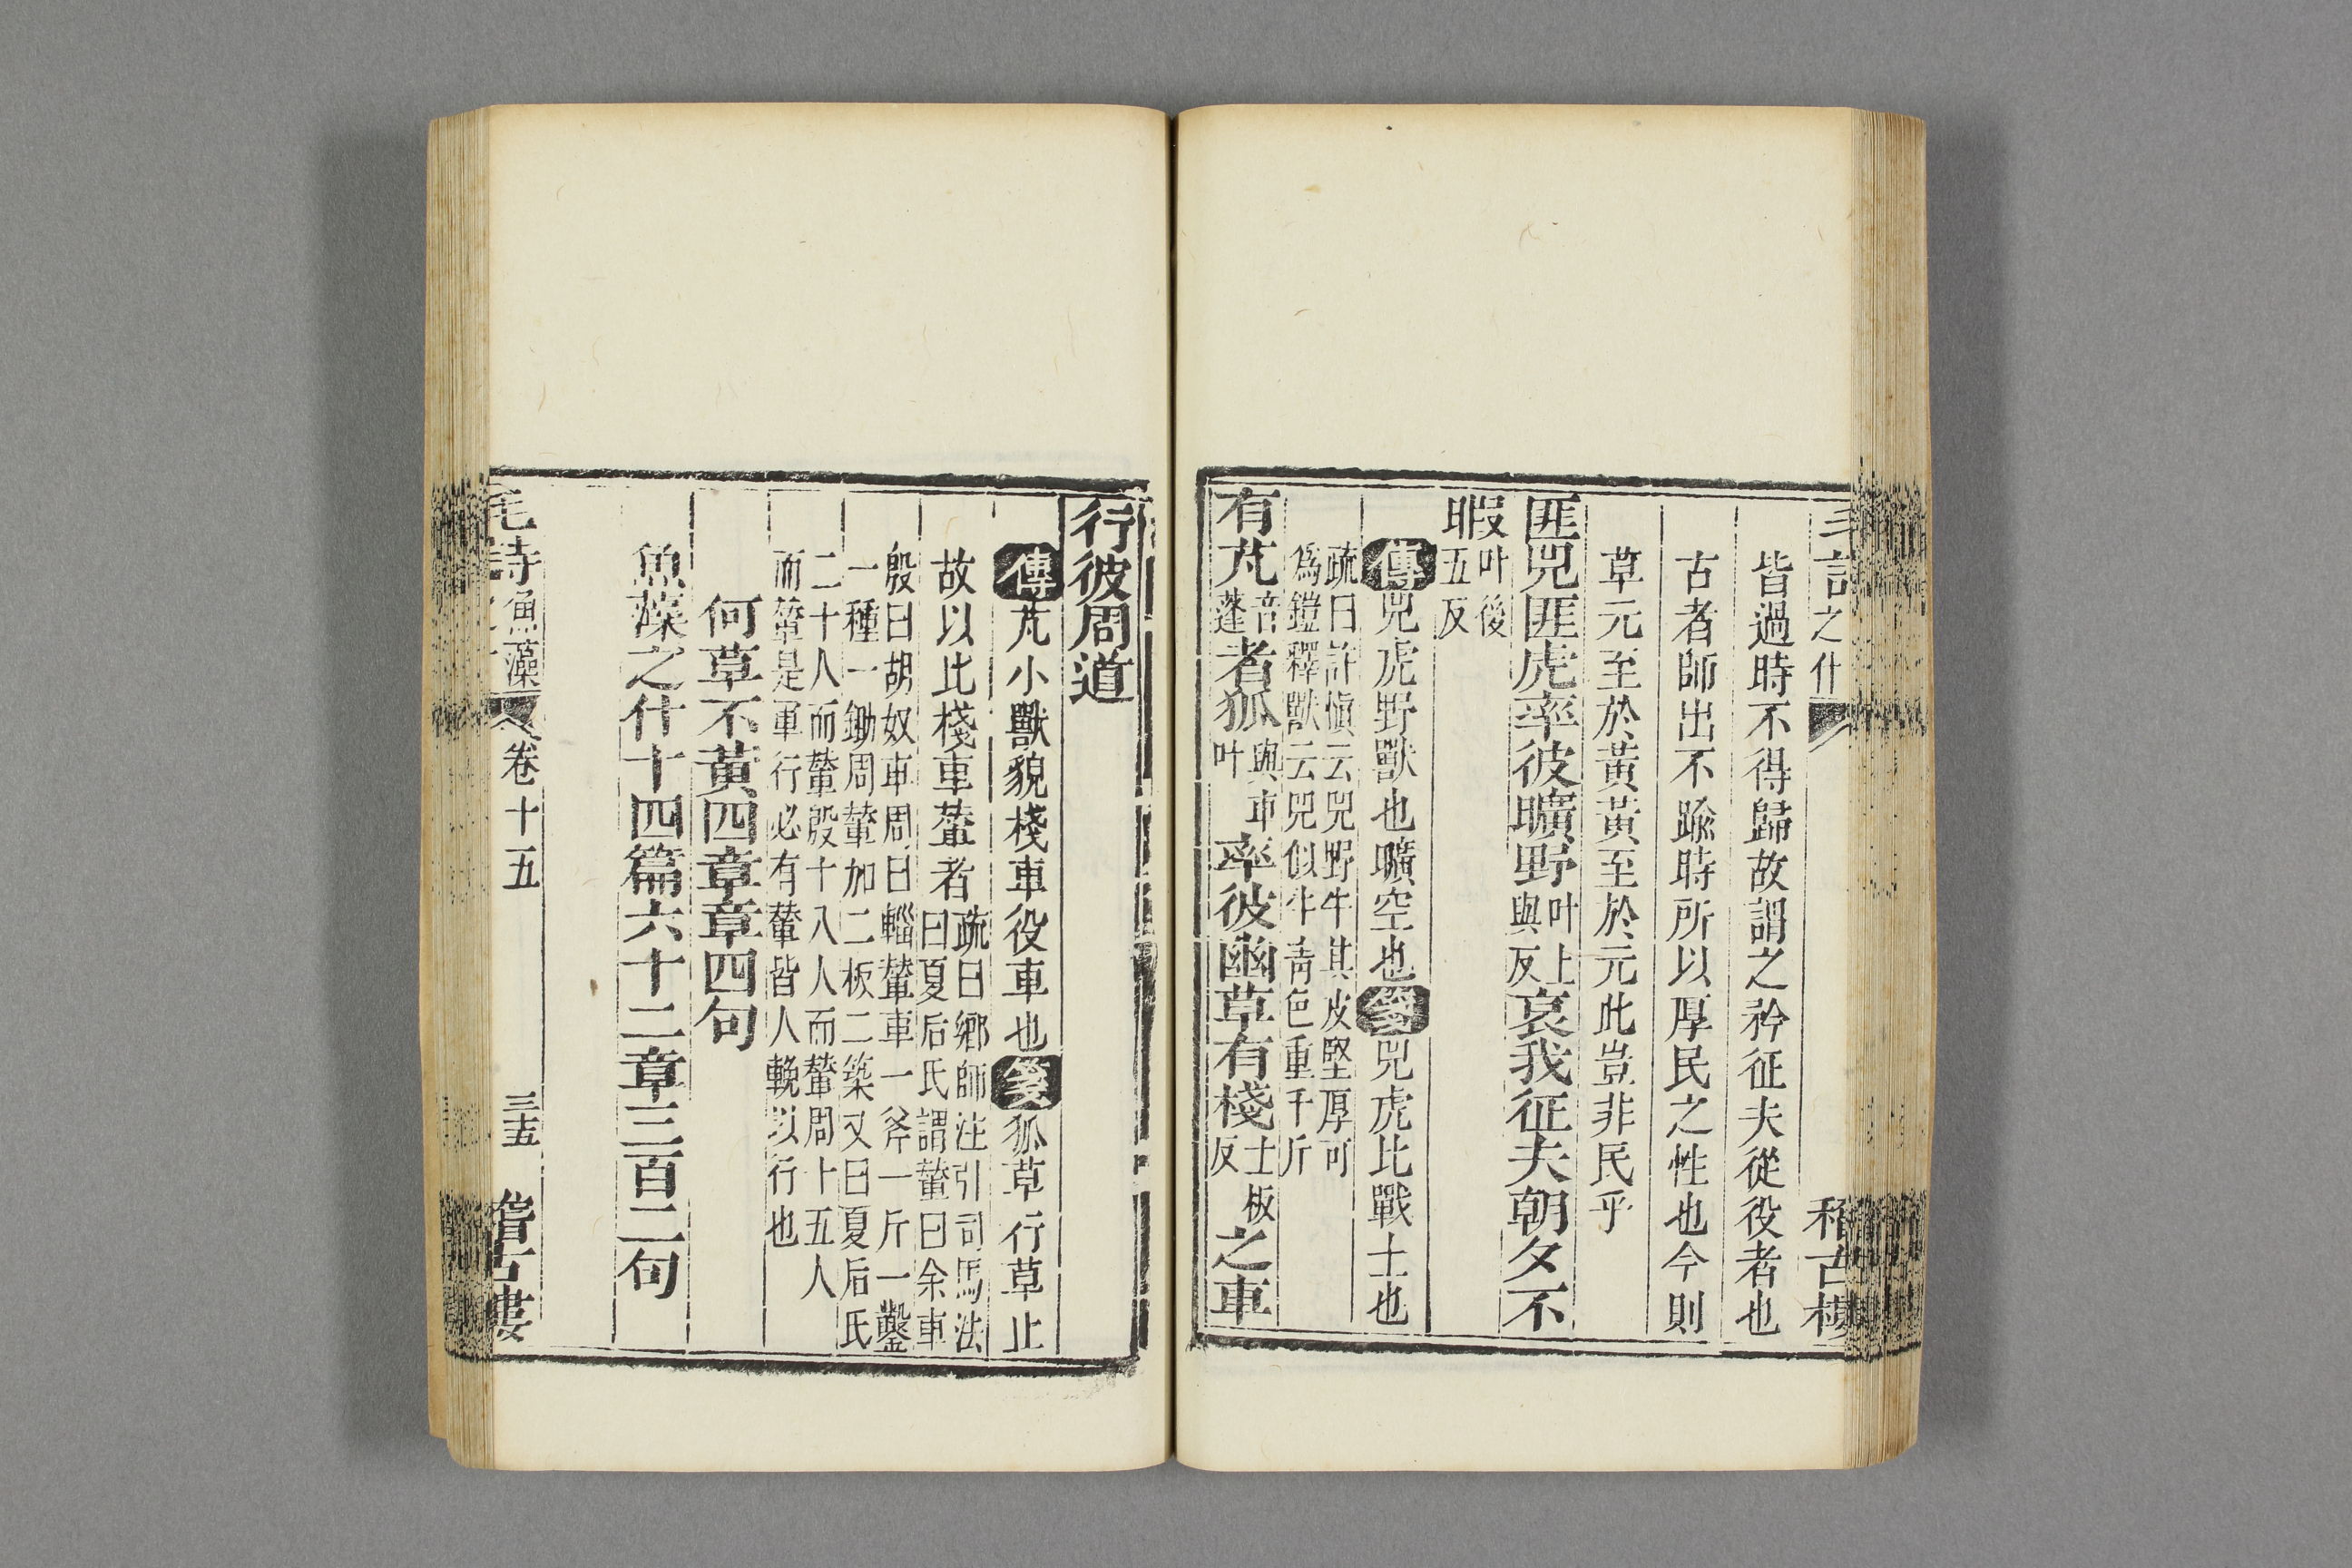 皆過時不得歸故謂之矜征夫從役者也
古者師出不踰時所以厚民之性也今則
草元至於黃黃至於元此豈非民乎
匪兕匪虎率彼曠野叶上與反哀我征夫朝夕不
暇叶後五反
傳兕虎野獸也曠空也箋兕虎比戰士也
疏曰許愼云兕野牛其皮堅厚可
爲鎧釋獸云兕似牛靑色重千斤
有芃音蓬者狐與車叶率彼幽草有棧士板反之車
行彼周道
傳芃小獸貌棧車役車也箋狐草行草止
故以比棧車輦者疏曰鄉師注引司馬法曰夏后氏謂輦曰余車
殷曰胡奴車周曰輜輦車一斧一斤一鑿
一種一鋤周輦加二板二築又曰夏后氏
二十人而輦殷十八人而輦周十五人
而輦是軍行必有輦皆人輓以行也
何草不黃四章章四句
魚藻之什十四篇六十二章三百二句
魚藻
卷十五
三十五